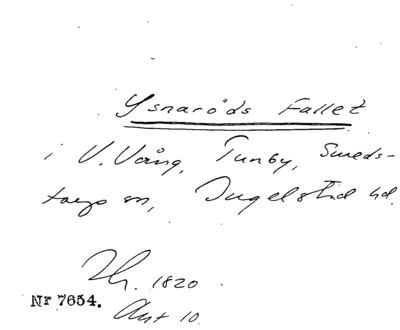 Ysnaröds Fallet
i V. Vång, Tunby, Smeds-
torps sn, Ingelstad hd.
1820
Nr 7654.
Ant 10